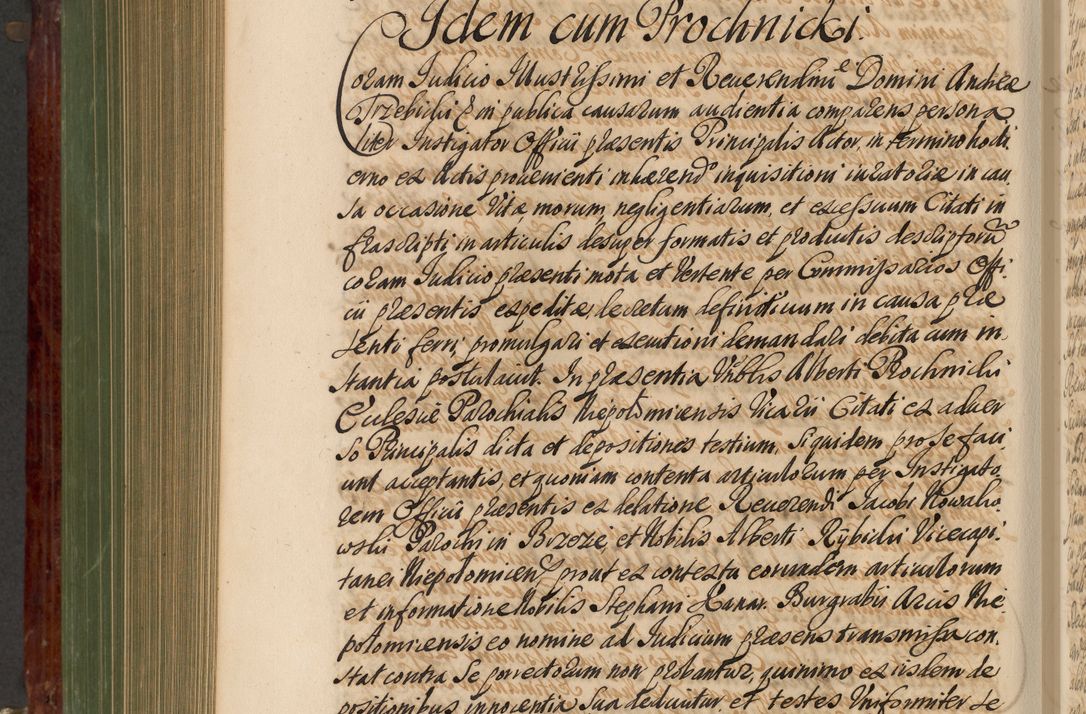 Idem cum Prochnicki.
Coram Judicio Illustrissimi et Reuerendmi Domini Andreæ
Trzebicki &c in publica causarum audientia comparens persona
liter Instigator Officii præsentis Principalis Actor, in termino hodi
erno ex Actis prouenienti inhærend inquisitioni iuratoriæ in cau
sa occasione Vitæ, morum, negligentiarum, et excessuum Citati in
frascripti in articulis desuper formatis et productis descriptorū
coram Judicio præsenti mota et Vertente per Commissarios Offi
cii præsentis expeditæ, decretum definitiuum in causa præ
senti ferri, promulgari et executioni demandari debita cum in
stantia postulauit. In præsentia Vnblis Alberti Prochnicki
Ecclesiæ Parochialis Niepołomicensis Vicarii Citati ex aduer
so Principalis dicta et depositiones testium, siquidem pro se faci
unt acceptantis, et quoniam contenta articulorum per Instigato
rem Officii præsentis ex delatione Reuerendi Jacobi Nowako
wski Parochi in Brzezie, et Nobilis Alberti Rybicki Vicecapi
tanei Niepolomicen, prout ex contextu eorundem articulorum
et informatione Nobilis Stephani Burgrabii Arcis Nie
polomicensis eo nomine ad Judicium præsens transmissa con
stat contra se porrectorum non probantur, quinimo ex iisdem de
positionibus innocentia sua deducitur, et testes Vniformiter se